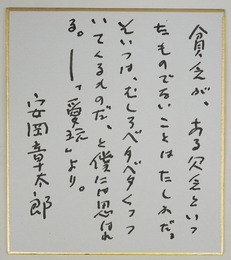 貧乏が、ある欠乏といっ
たものでないことはたしかだ。
そいつは、むしろベタベタくっつ
いてくるものだ、と僕には思はれ
る。――「愛玩」より。
安岡章太郎